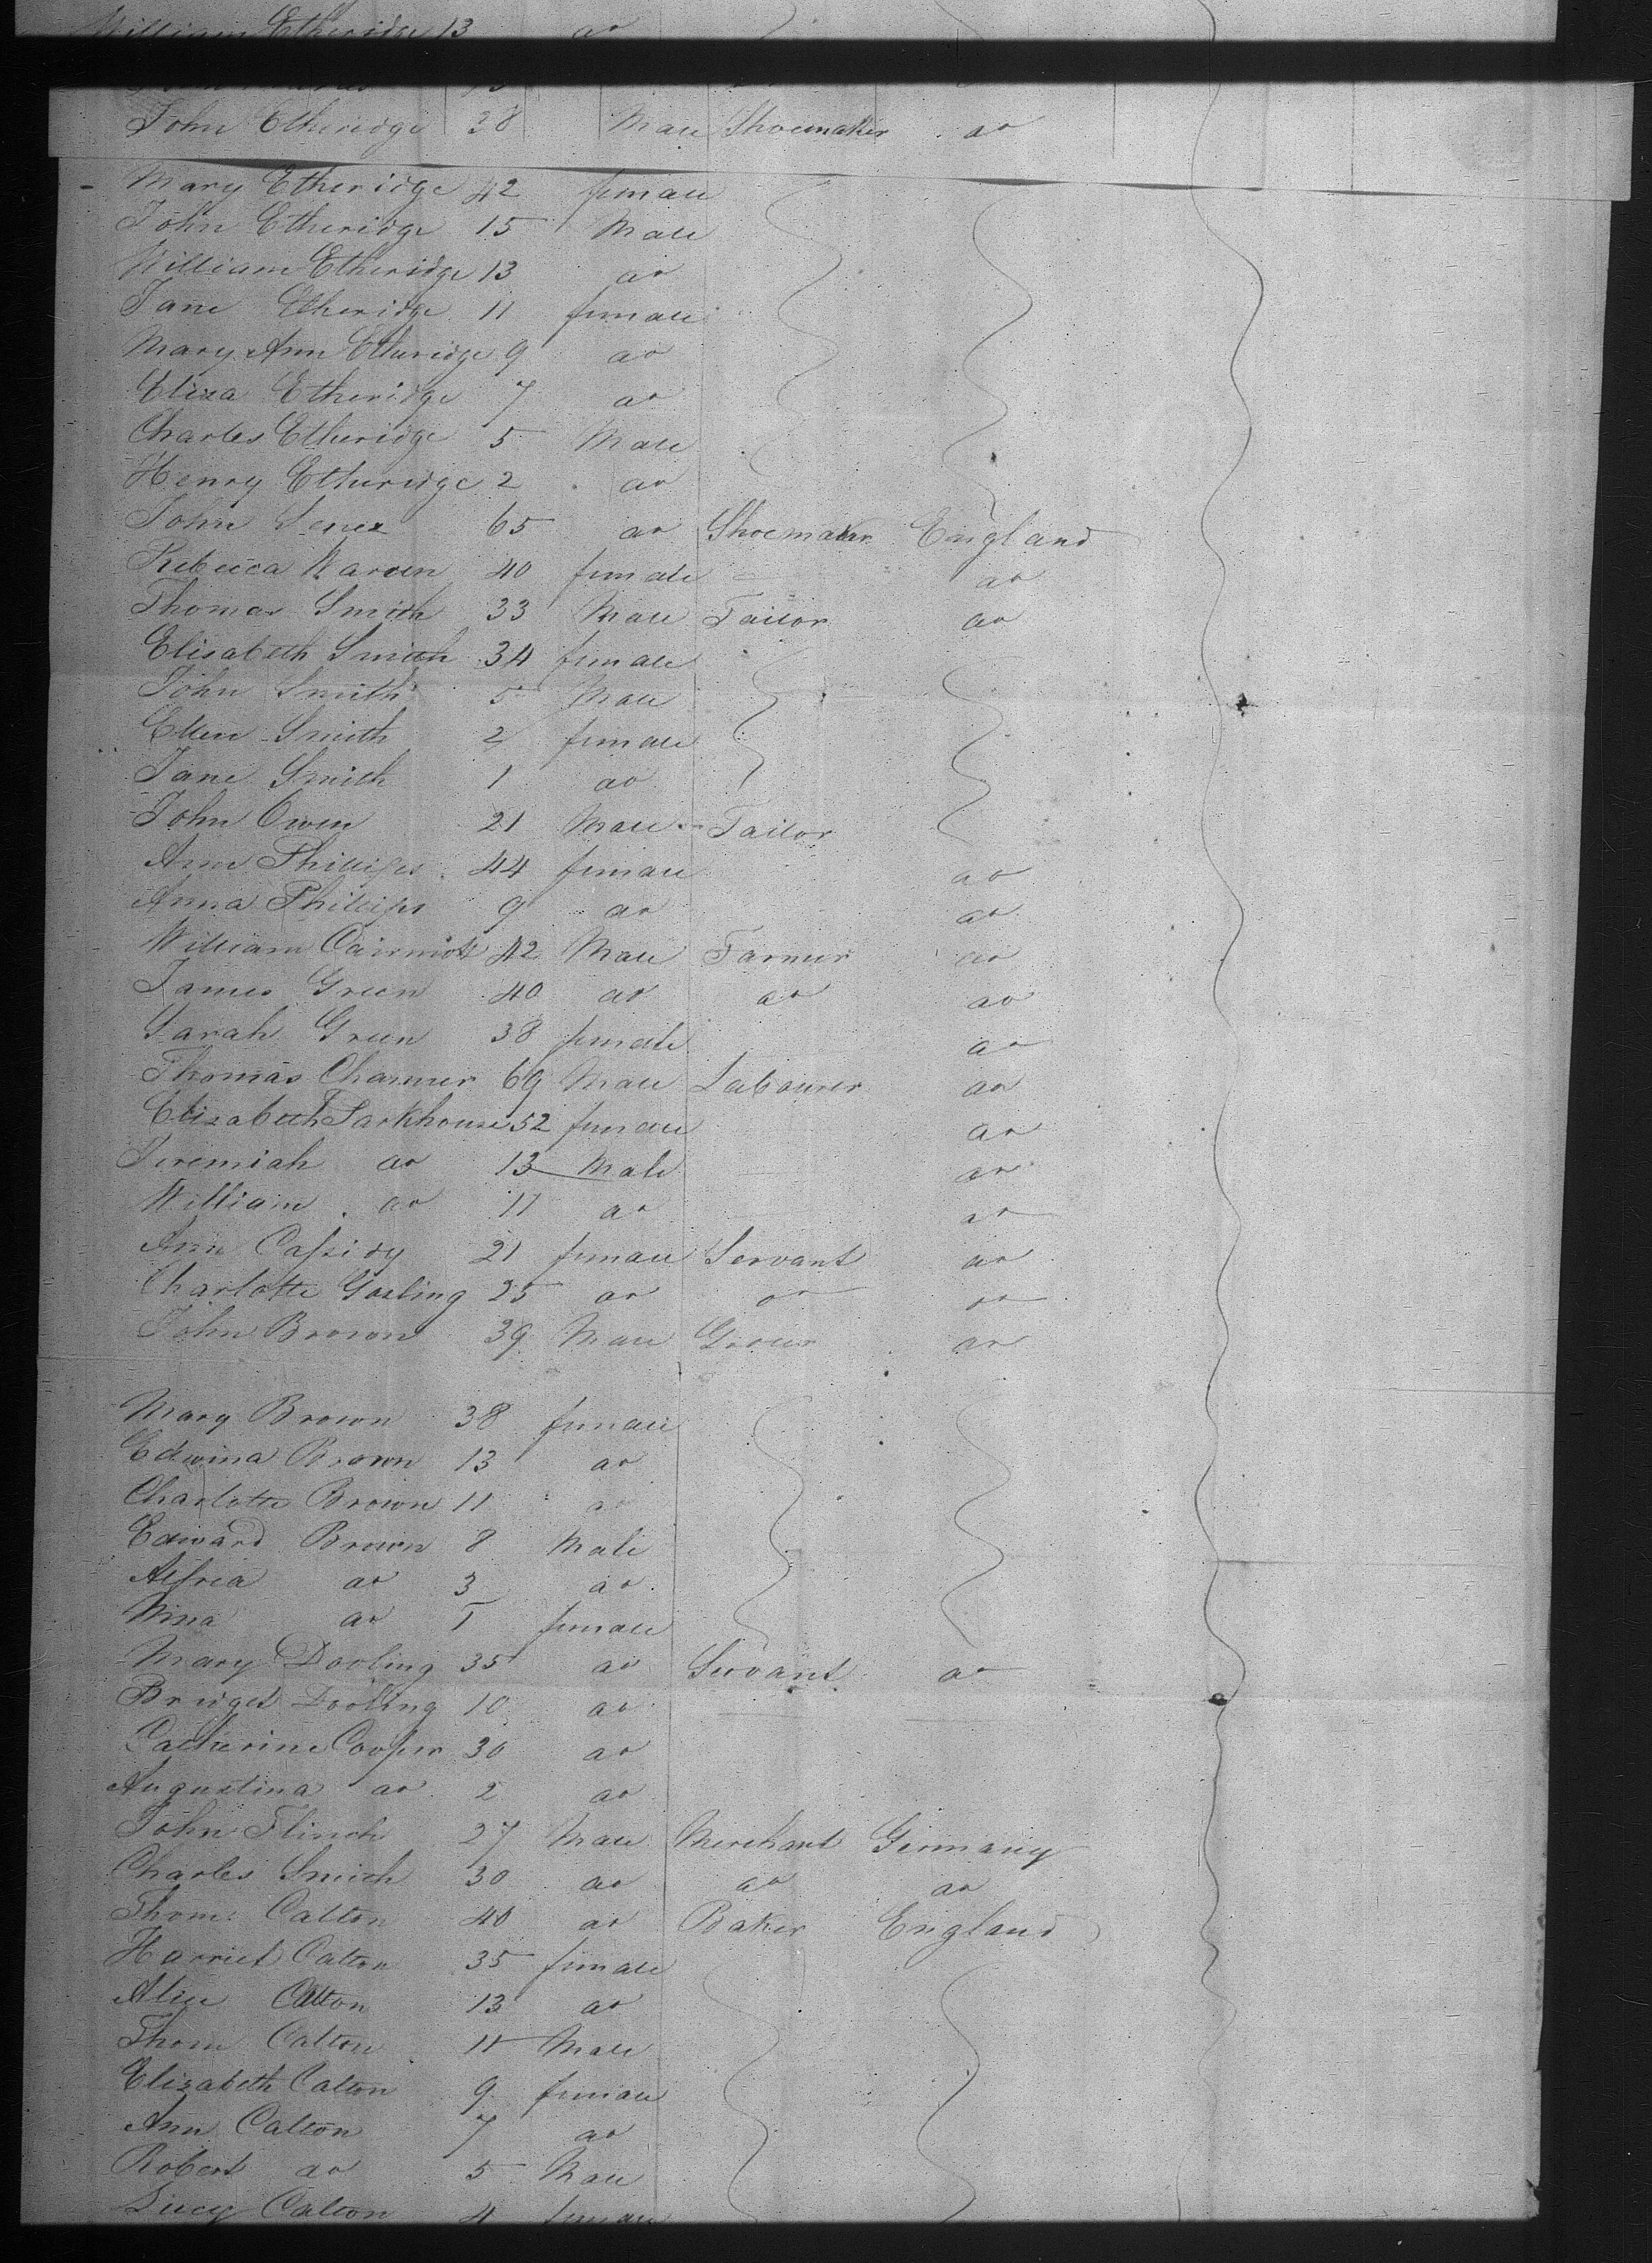 William Etheridge 13 do
John Etheridge 38 Male Shoemaker do
Mary Etheridge 42 female
John Etheridge 15 Male
William Etheridge 13 do
Jane Etheridge 11 female
Mary Ann Etheridge 9 do
Eliza Etheridge 7 do
Charles Etheridge 5 Male
Henry Etheridge 2 do
John Senez 65 do Shoemaker England
Rebecca Warden 40 female do
Thomas Smith 33 Male Tailor do
Elisabeth Smith 34 female
John Smith 5 Male
Ellen Smith 2 female
Jane Smith 1 do
John Owen 21 Male Tailor
Ann Phillips 44 female do
Anna Phillips 9 do do
William 42 Male Farmer do
James Green 40 do do do
Sarah Green 38 female do
Thomas Charmer 69 Male Labourer do
Elizabeth Parkhouse 52 female do
Jeremiah do 13 Male do
William do 11 do do
Ann Cassidy 21 female Servant do
Charlotte Gosling 25 do do do
John Brown 39 Male Grocer do
Mary Brown 38 female
Edwina Brown 13 do
Charlotte Brown 11 do
Edward Brown 8 Male
Alfred do 3 do
Nina do 1 female
Mary Dooling 35 do Servant do
Bridget Dooling 10 do
Catherine Cooper 30 do
Augustina do 2 do
John Flinch 27 Male Merchant Germany
Charles Smith 30 do do do
Thom: Calton 40 do Baker England
Harriet Calton 35 female
Alice Calton 13 do
Thom Calton 11 Male
Elizabeth Calton 9 female
Ann Calton 7 do
Robert do 5 Male
Lucy Calton 4 female